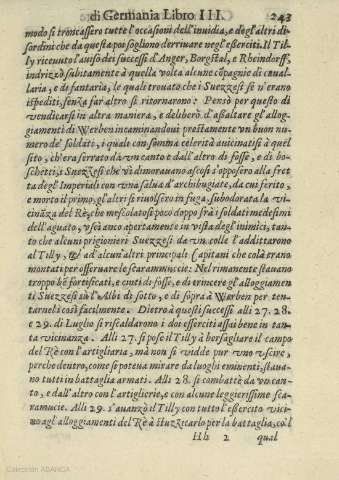 di Germania Libro III. 243
modo si troncassero tutte l'occasioni dell'inuidia, e degl'altri di-
sordini che da questa poi sogliono derriuare negl'eßerciti. Il Til-
ly riceuuto l'auiso de i successi d'Anger, Borgstal, e Rheindorff,
indrizzò subitamente à quella volta alcune cōpagnie di caual-
laria, e di fantaria, le quali trouato che i Suezzesi se n'erano
ispediti, senza far altro si ritornarono: Pensò per questo di
vendicarsi in altra maniera, e deliberò d'aßaltare gl'allog-
giamenti di Werben incaminandoui prestamente vn buon nu-
mero de' soldati, i quali con somma celerità auicinatisi à quel
sito, ch'era serrato da vn canto e dall'altro di fosse, e di bo-
schetti, i Suezzesi che vi dimorauano ascosi s'opposero alla fret
ta degl'Imperiali con vna salua d'archibugiate, da cui ferito,
e morto il primo, gl'altri si riuolsero in fuga, subodorata la vi-
cināza del Rè, che mescolatose poco doppo frà i soldati medesimi
dell'aguato, vscì anco apertamente in vista degl'inimici, tan-
to che alcuni prigionieri Suezzesi da vn colle l'addittarono
al Tilly, & ad alcun'altri principali Capitani che colà erano
montati per osseruare le scaramuccie: Nel rimanente stauano
troppo bē fortificati, e cinti di fosse, e di trincere gl'alloggiamen
ti Suezzesi trà l'Albi di sotto, e di sopra à Werben per ten-
tarneli così facilmente. Dietro à questi successi alli 27. 28.
e 29. di Luglio si riscaldarono i doi esserciti assai bene in tan-
ta vicinanza. Alli 27. si pose il Tilly à bersagliare il campo
del Rè con l'artigliaria, mà non si vidde pur vno vscire,
perche dentro, come se poteua mirare da luoghi eminenti, staua
no tutti in battaglia armati. Alli 28. si combattè da vn can-
to, e dall'altro con l'artiglierie, e con alcune leggierissime sca-
ramucie. Alli 29. s'auanzò il Tilly con tutto l'eßercito vici-
no agl'alloggiamenti del Rè à stuzzicarlo per la battaglia, co'l
Hh 2 qual
Colección ABANCA